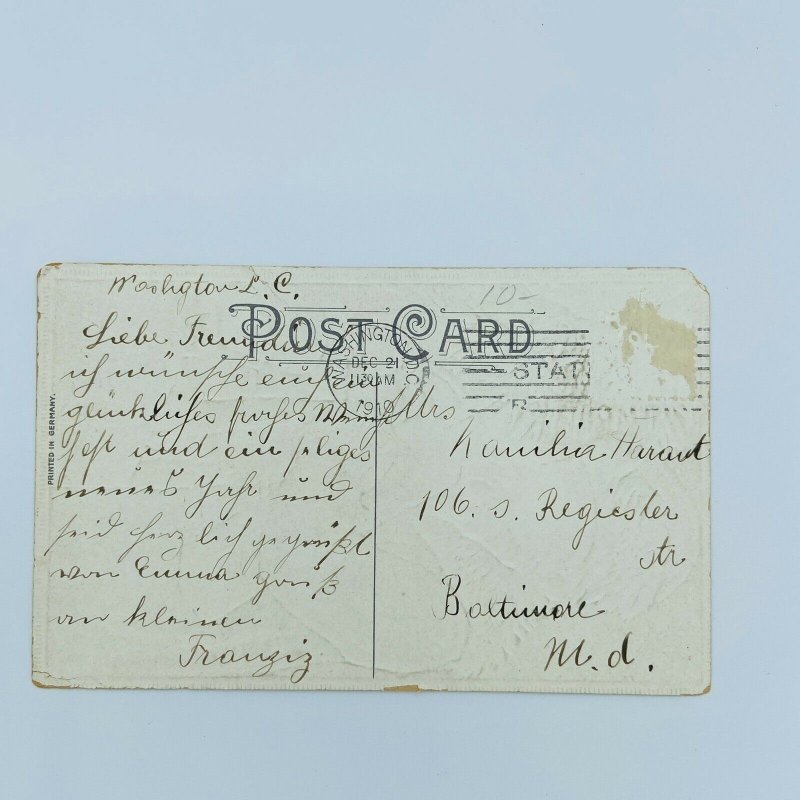 Washigton D. C.
10-
POST CARD
WASHINGTON, D.C.
DEC 21
1130 AM
1910
STAT
R
PRINTED IN GERMANY.
Liebe Freundin
ich wünsche
glückliches frohes
fest und ein seliges
neues Jahr und
seid herzlich gegrüßt
von Emma gruß
an kleinen
Franziz
Mrs
Kamilia Harant
106. S. Regiester
str
Baltimore
M. d.